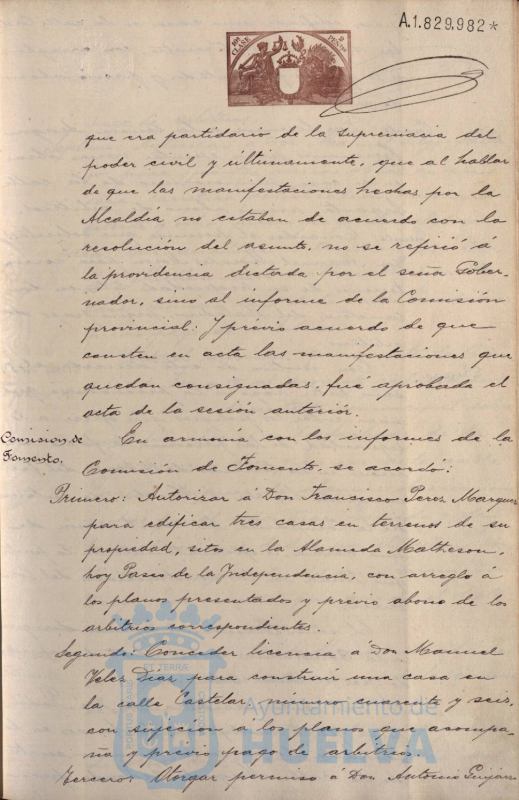 A.1.829.982*
10ª CLASE
2 PESETAS
que era partidario de la supremacia del
poder civil y últimamente, que al hablar
de que las manifestaciones hechas por la
Alcaldía no estaban de acuerdo con la
resolución del asunto, no se refirió á
la providencia dictada por el señor Gober-
nador, sino al informe de la Comisión
provincial. Y previo acuerdo de que
consten en acta las manifestaciones que
quedan consignadas, fué aprobada el
acta de la sesión anteriór.
Comision de
Fomento.
En armonía con los informes de la
Comisión de Fomento, se acordó:
Primero: Autorizar á Don Francisco Perez Marquez
para edificar tres casas en terrenos de su
propiedad, sitos en la Alameda Matheson,
hoy Paseo de la Independencia, con arreglo á
los planos presentados y previo abono de los
arbitrios correspondientes.
Segundo: Conceder licencia á Don Manuel
Velez Diaz para construir una casa en
la calle Castelar, número cuarenta y seis,
con sujecion á los planos que acompa-
ña y previo pago de arbitrios.
Tercero: Otorgar permiso á Don Antonio Guijar
Ayuntamiento de
HUELVA